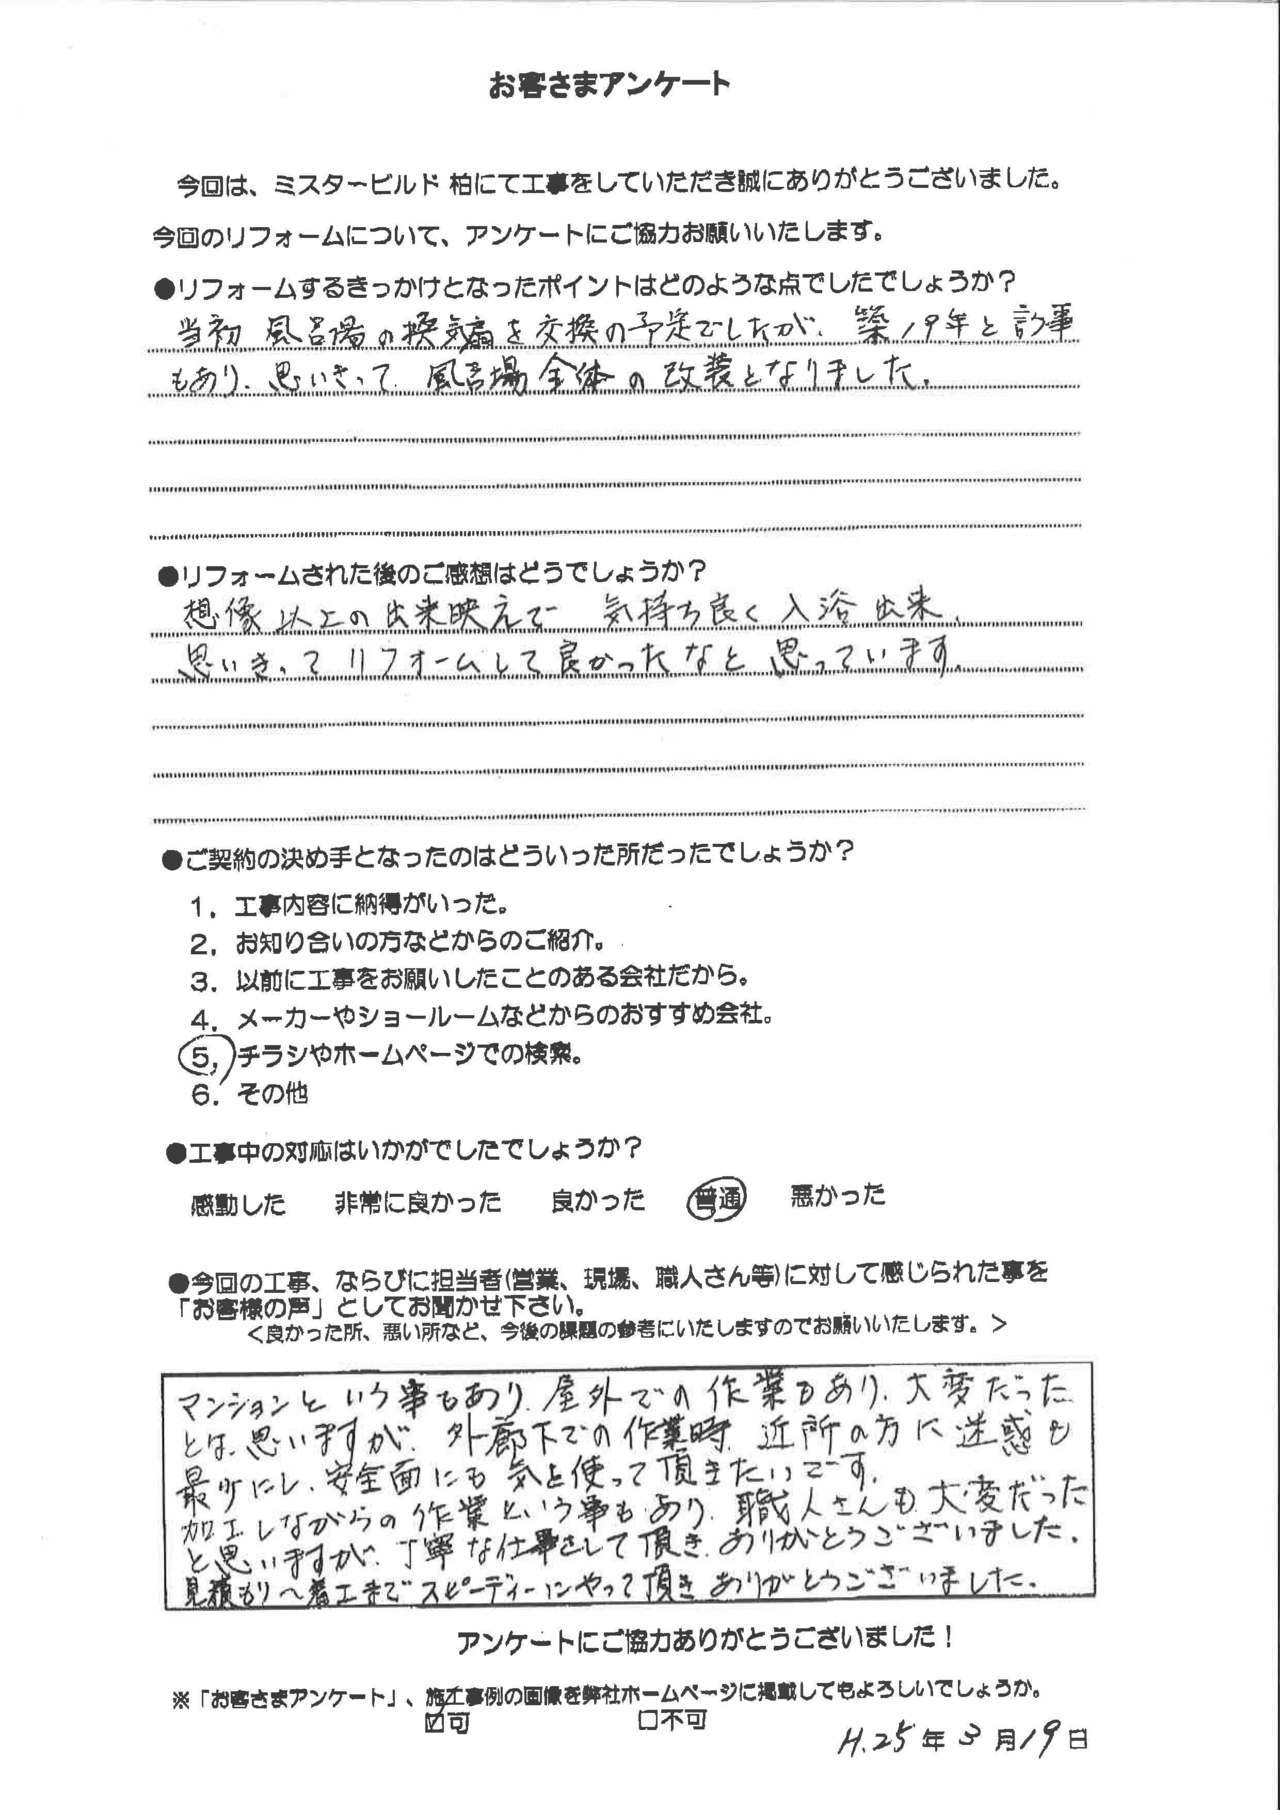 お客さまアンケート
今回は、ミスタービルド 柏にて工事をしていただき誠にありがとうございました。
今回のリフォームについて、アンケートにご協力お願いいたします。
●リフォームするきっかけとなったポイントはどのような点でしたでしょうか？
当初 風呂場の換気扇を交換の予定でしたが、築19年と言う事
もあり、思いきって 風呂場全体の改装となりました。
●リフォームされた後のご感想はどうでしょうか？
想像以上の出来映えで 気持ち良く入浴出来、
思いきってリフォームして良かったなと思っています。
●ご契約の決め手となったのはどういった所だったでしょうか？
1. 工事内容に納得がいった。
2. お知り合いの方などからのご紹介。
3. 以前に工事をお願いしたことのある会社だから。
4. メーカーやショールームなどからのおすすめ会社。
5. チラシやホームページでの検索。
6. その他
●工事中の対応はいかがでしたでしょうか？
感動した 非常に良かった 良かった 普通 悪かった
●今回の工事、ならびに担当者(営業、現場、職人さん等)に対して感じられた事を
「お客様の声」としてお聞かせ下さい。
＜良かった所、悪い所など、今後の課題の参考にいたしますのでお願いいたします。＞
マンションという事もあり、屋外での作業もあり、大変だった
とは思いますが、外廊下での作業時、近所の方に迷惑も
最少にし、安全面にも気を使って頂きたいです。
加工しながらの作業という事もあり、職人さんも大変だった
と思いますが、丁寧な仕事をして頂き、ありがとうございました。
見積もり〜着工までスピーディーにやって頂きありがとうございました。
アンケートにご協力ありがとうございました！
※「お客さまアンケート」、施工事例の画像を弊社ホームページに掲載してもよろしいでしょうか。
☑可 □不可
H.25年3月19日